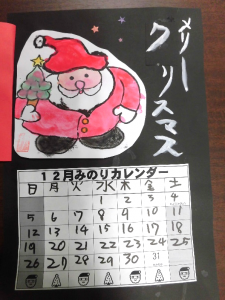 メリー
クリスマス
12月みのりカレンダー
日 月 火 水 木 金 土
1 2 3 4
5 6 7 8 9 10 11
12 13 14 15 16 17 18
19 20 21 22 23 24 25
26 27 28 29 30 31